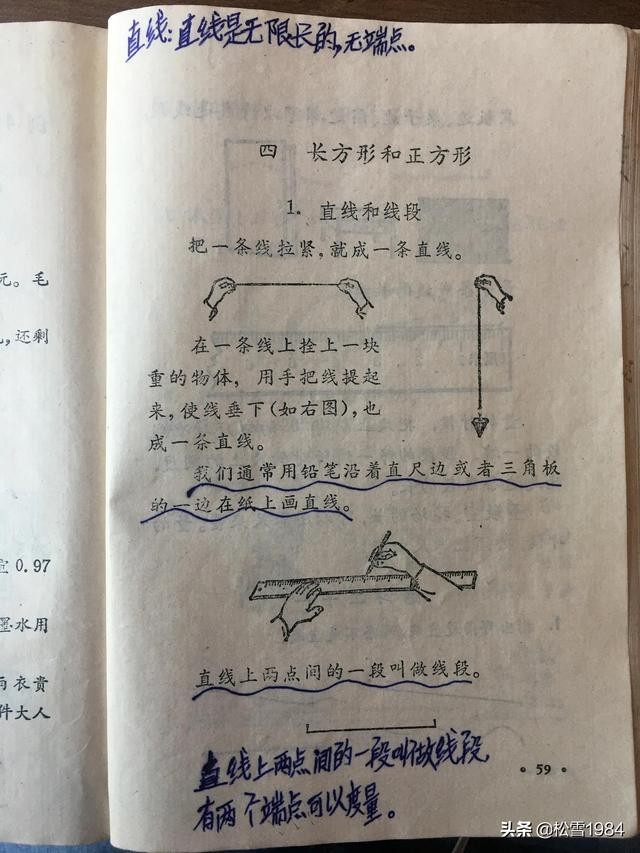 直线：直线是无限长的，无端点。
四 长方形和正方形
1. 直线和线段
把一条线拉紧，就成一条直线。
在一条线上拴上一块
重的物体，用手把线提起
来，使线垂下（如右图），也
成一条直线。
我们通常用铅笔沿着直尺边或者三角板
的一边在纸上画直线。
直线上两点间的一段叫做线段。
直线上两点间的一段叫做线段
有两个端点可以度量。
• 59 •
元。毛
，还剩
0.97
墨水用
衣贵
件大人
头条 @松雪1984